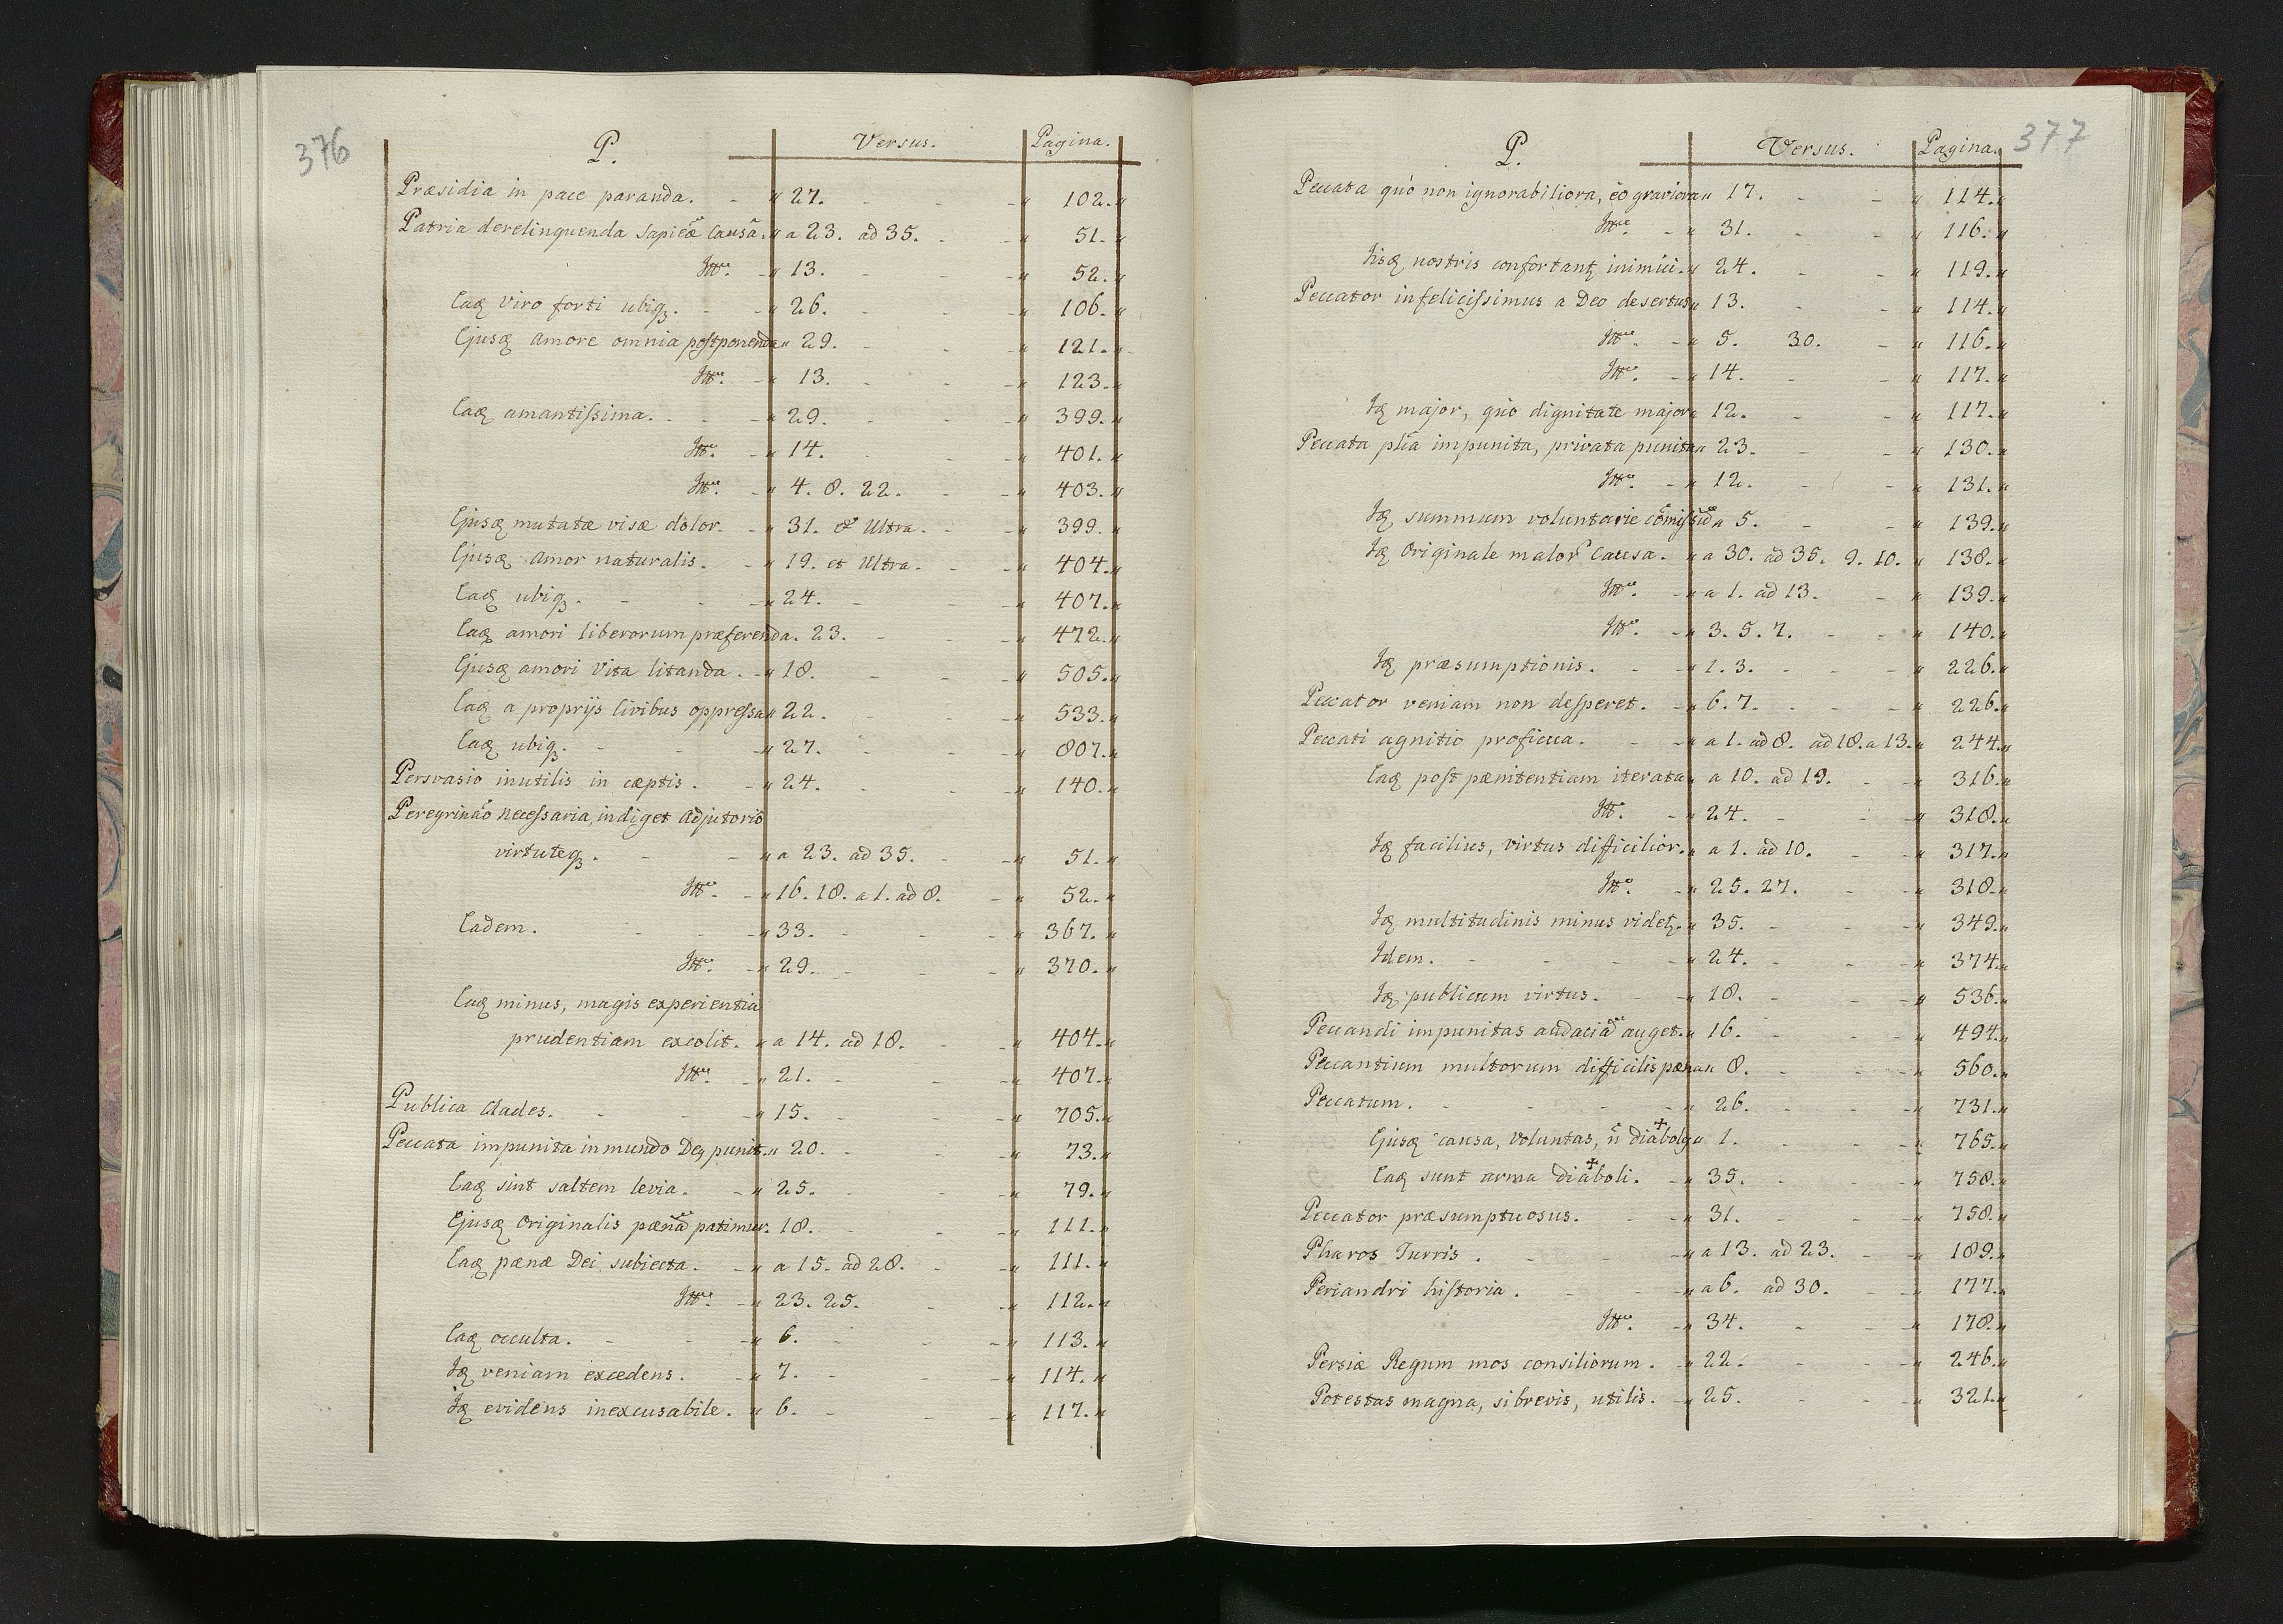 376
P. Versus. Pagina.
Præsidia in pace paranda. 27. 102.
Patria derelinquenda sapiẽæ Causâ. a 23. ad 35. 51.
Itẽ. 13. 52.
Eaq viro forti ubiqȝ. 26. 106.
Ejusq amore omnia postponenda 29. 121.
Itẽ. 13. 123.
Eaq amantissima. 29. 399.
Itẽ. 14. 401.
Itẽ. 4. 8. 22. 403.
Ejusq mutatæ visæ dolor. 31. & Ultra. 399.
Ejusq Amor naturalis. 19. et Ultra. 404.
Eaq ubiqȝ. 24. 407.
Eaq amori liberorum præferenda. 23. 472.
Ejusq amori Vita litanda. 18. 505.
Eaq a proprijs Civibus oppressa 22. 533.
Eaq ubiqȝ. 27. 807.
Persvasio inutilis in cæptis. 24. 140.
Peregrinaõ necessaria, indiget Adjutorio
virtuteqȝ. a 23. ad 35. 51.
Itẽ. 16. 18. a 1. ad 8. 52.
Eadem. 33. 367.
Itẽ. 29. 370.
Eaq minus, magis experientia
prudentiam excolit. a 14. ad 18. 404.
Itẽ. 21. 407.
Publica Clades. 15. 705.
Peccata impunita in mundo Deq punit. 20. 73.
Eaq sint saltem levia. 25. 79.
Ejusq Originalis pænã patimur. 18. 111.
Eaq pænæ Dei subiecta. a 15. ad 28. 111.
Itẽ. 23. 25. 112.
Eaq occulta. 6. 113.
Iq veniam excedens. 7. 114.
Iq evidens inexcusabile. 6. 117.
377
P. Versus. Pagina.
Peccata quò non ignorabiliora, eò graviora 17. 114.
Itẽ. 31. 116.
Iisq nostris confortantȝ inimici. 24. 119.
Peccator infelicissimus a Deo desertus 13. 114.
Itẽ. 5. 30. 116.
Itẽ. 14. 117.
Iq major, quò dignitate major 12. 117.
Peccata plĩa impunita, privata punita 23. 130.
Itẽ. 12. 131.
Iq summum voluntarie cõmissũ 5. 139.
Iq Originale malor Causa. a 30. ad 35. 9. 10. 138.
Itẽ. a 1. ad 13. 139.
Itẽ. 3. 5. 7. 140.
Iq præsumptionis. 1. 3. 226.
Peccator veniam non desperet. 6. 7. 226.
Peccati agnitio proficua. a 1. ad 8. ad 18. a 13. 244.
Eaq post pænitentiam iterata a 10. ad 19. 316.
Itẽ. 24. 318.
Iq facilius, virtus difficilior. a 1. ad 10. 317.
Itẽ. 25. 27. 318.
Iq multitudinis minus videtȝ. 35. 349.
Idem. 24. 374.
Iq publicum virtus. 18. 536.
Peccandi impunitas audaciã auget. 16. 494.
Peccantium multorum difficilis pæna 8. 560.
Peccatum. 26. 731.
Ejusq causa, Voluntas, ñ diabolq 1. 765.
Eaq sunt arma diaboli. 35. 758.
Peccator præsumptuosus. 31. 758.
Pharos Turris. a 13. ad 23. 189.
Periandri historia. a 6. ad 30. 177.
Itẽ. 34. 178.
Persiæ Regum mos consiliorum. 22. 246.
Potestas magna, si brevis, utilis. 25. 321.